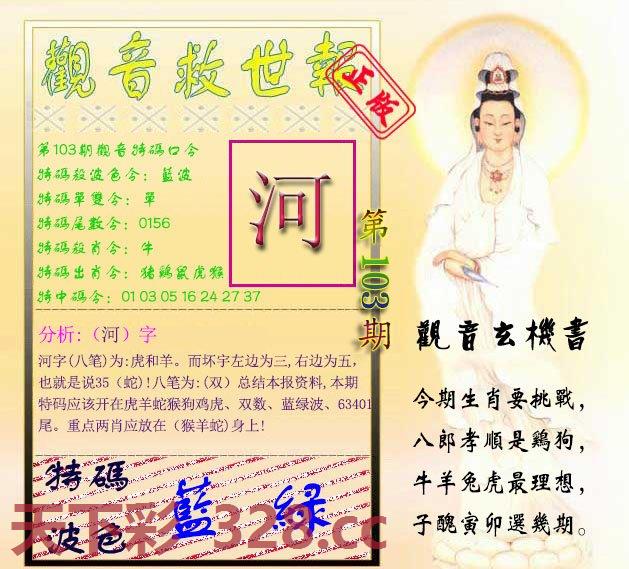 觀音救世報
正版
第103期觀音特碼口令
特碼殺波色令：藍波
特碼單雙令：單
特碼尾數令：0156
特碼殺肖令：牛
特碼出肖令：猪鷄鼠虎猴
特中碼令：01 03 05 16 24 27 37
河
第103期
分析:（河）字
河字(八笔)为:虎和羊。而坏宇左边为三,右边为五，
也就是说35（蛇)!八笔为:(双）总结本报资料,本期
特码应该开在虎羊蛇猴狗鸡虎、双数、蓝绿波、63401
尾。重点两肖应放在（猴羊蛇)身上!
特碼
波色
藍 綠
天下彩 328.cc
觀音玄機書
今期生肖要挑戰，
八郎孝順是鷄狗，
牛羊兔虎最理想，
子醜寅卯選幾期。